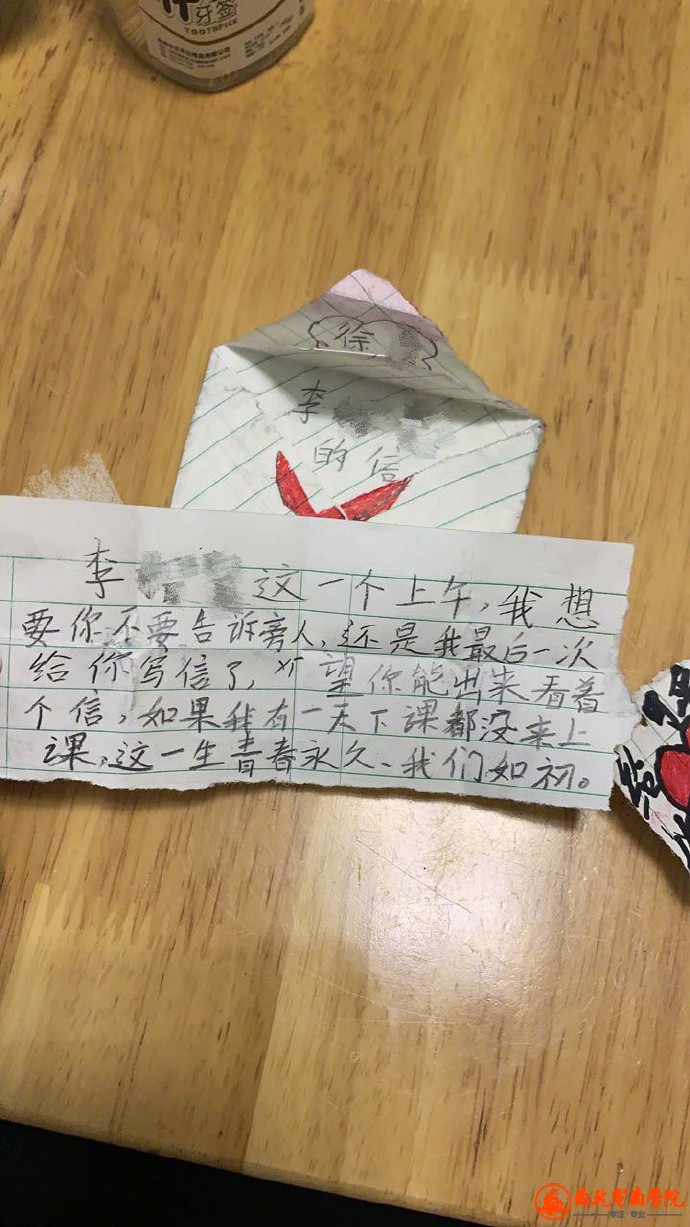 牙签
TOOTHPICK
徐
李
的信
李 这一个上午，我想
要你不要告诉旁人，还是我最后一次
给你写信了，希望你能出来看着
个信，如果我有一天下课都没来上
课，这一生青春永久、我们如初。
给
南北电商学院
专注·专业